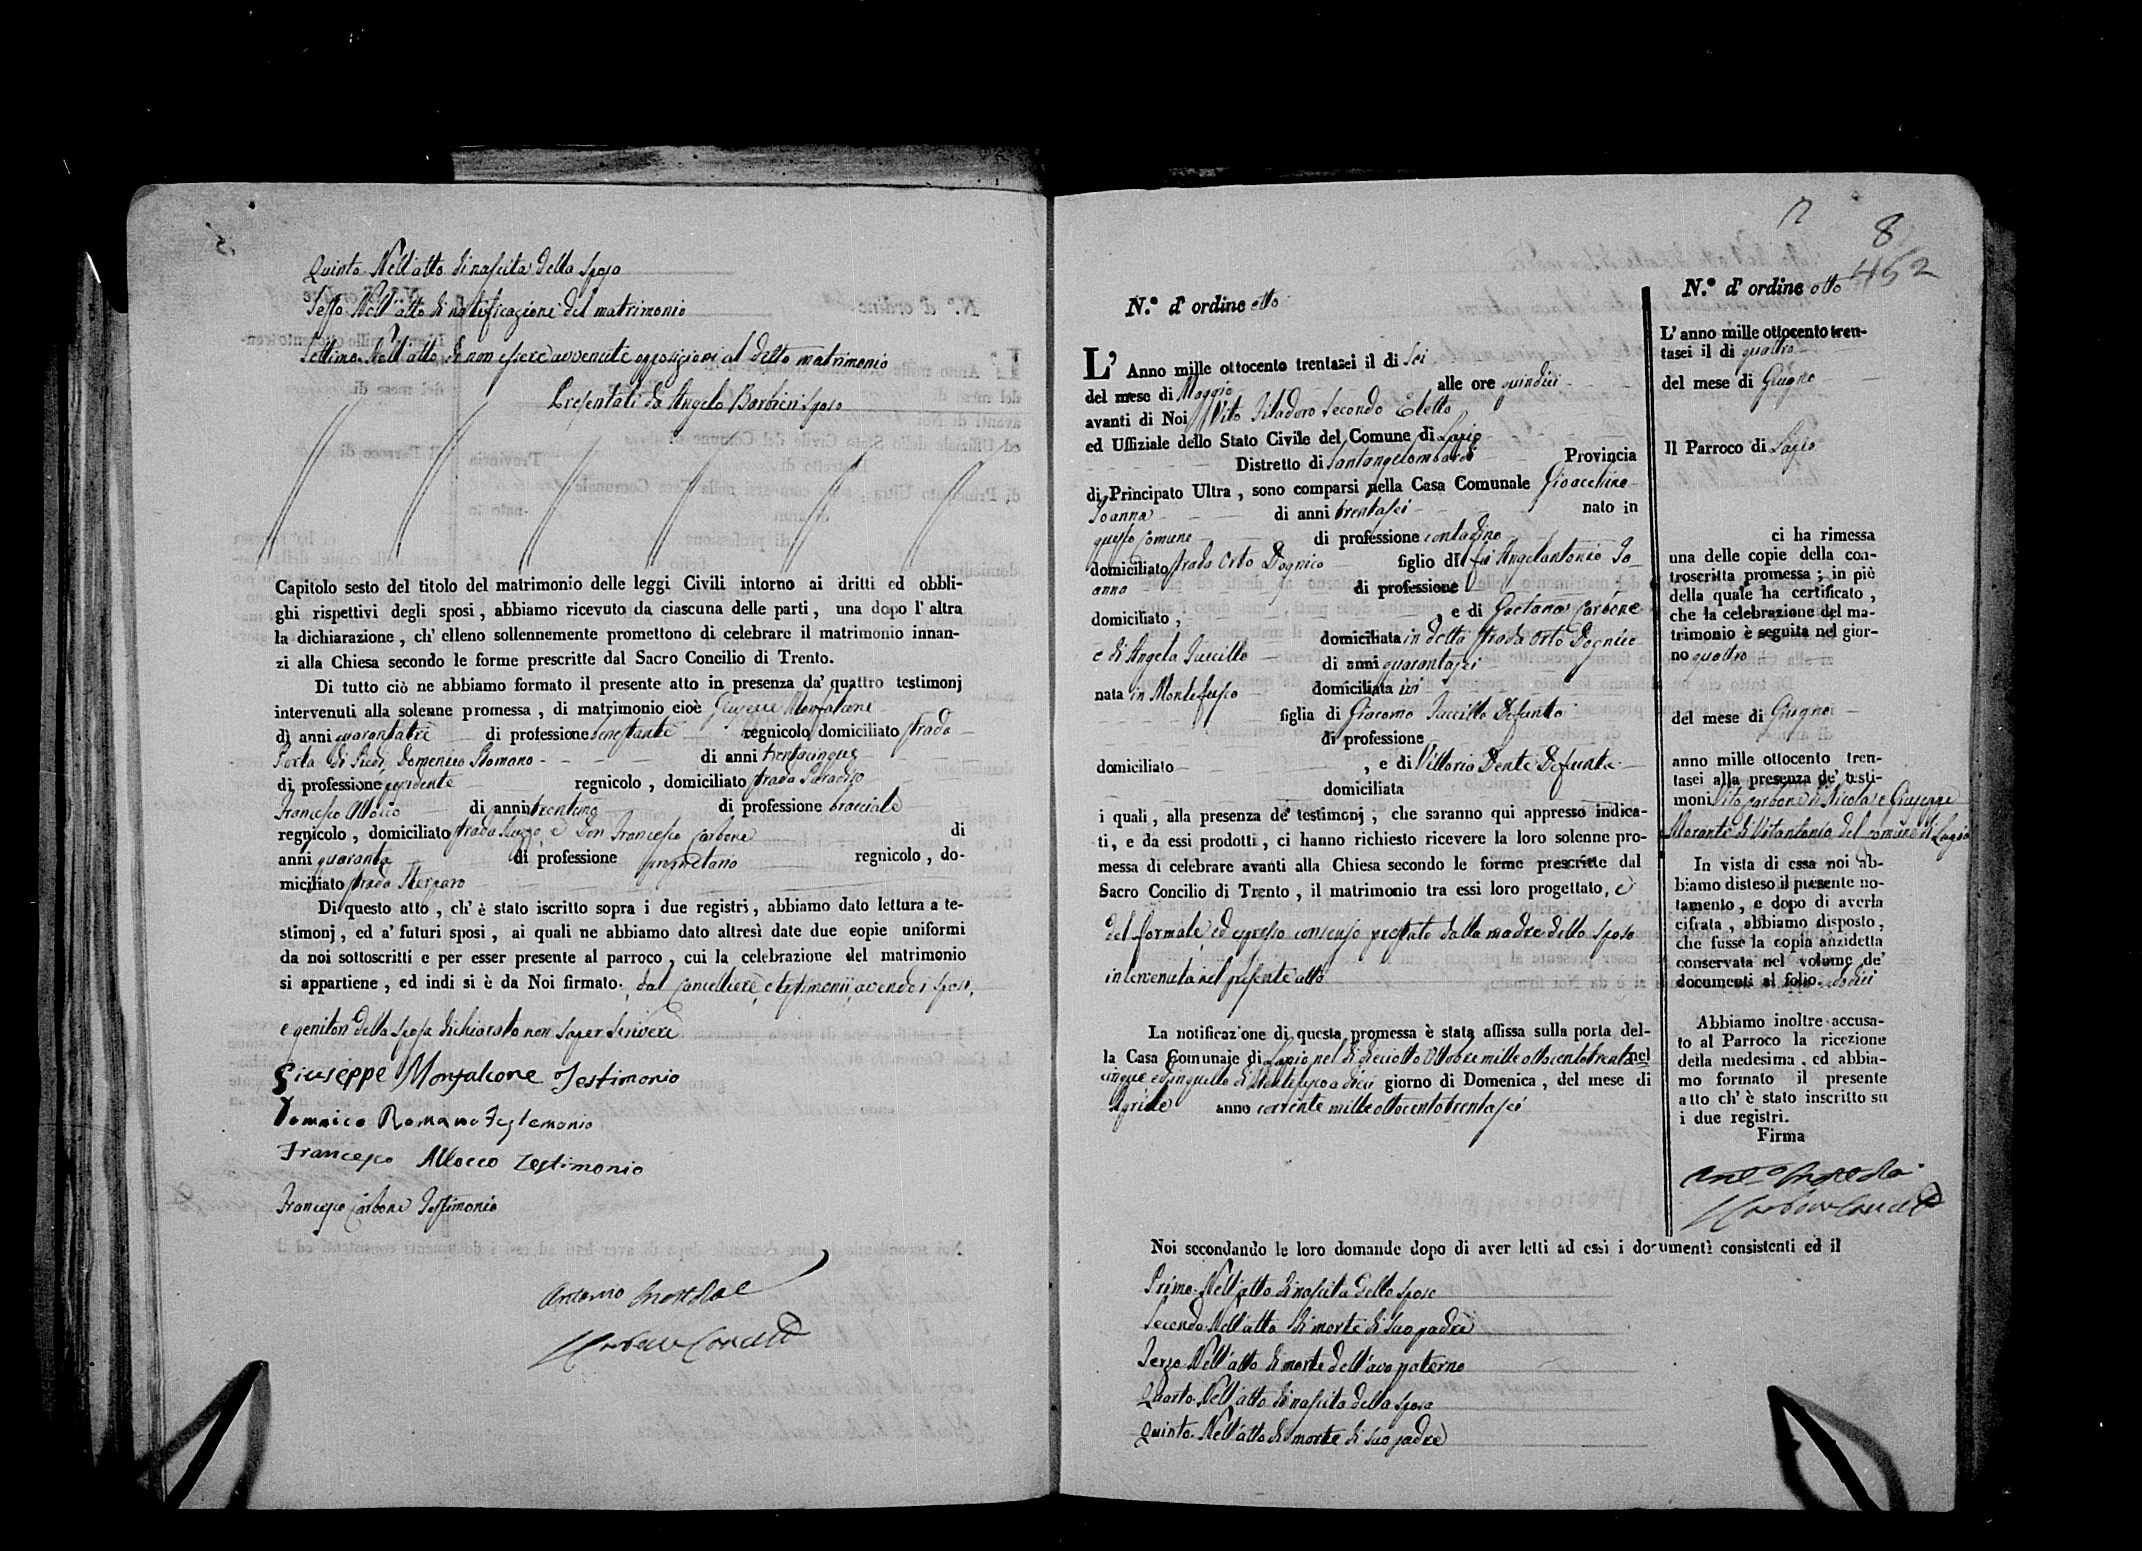 Quinto. Nell'atto di nascita della sposa
Sesto Nell'atto di notificazioni del matrimonio
Settimo. Nell'atto di non essere avvenute opposizioni al detto matrimonio
Presentati da Angelo Barbieri sposo
Capitolo sesto del titolo del matrimonio delle leggi Civili intorno ai dritti ed obbli-
ghi rispettivi degli sposi, abbiamo ricevuto da ciascuna delle parti, una dopo l'altra
la dichiarazione, ch'elleno sollennemente promettono di celebrare il matrimonio innan-
zi alla Chiesa secondo le forme prescritte dal Sacro Concilio di Trento.
Di tutto ciò ne abbiamo formato il presente atto in presenza da' quattro testimonj
intervenuti alla solenne promessa, di matrimonio cioè Giuseppe Monfalcone
di anni quarantatre di professione benestante regnicolo domiciliato strada
Porta di Piedi, Domenico Romano di anni trentacinque
di professione possidente regnicolo, domiciliato strada Paradiso
Francesco Allocco di anni trentuno di professione bracciale
regnicolo, domiciliato strada Puzzo, e Don Francesco Carbone di
anni quaranta di professione proprietario regnicolo, do-
miciliato strada
Di questo atto, ch'è stato iscritto sopra i due registri, abbiamo dato lettura a te-
stimonj, ed a' futuri sposi, ai quali ne abbiamo dato altresì date due copie uniformi
da noi sottoscritti e per esser presente al parroco, cui la celebrazione del matrimonio
si appartiene, ed indi si è da Noi firmato. dal Cancelliere, e testimonii, avendo i sposi,
e genitori della sposa dichiarato non saper scrivere
Giuseppe Monfalcone Testimonio
Domnico Romano Testemonio
Francesco Allocco Testimonio
Francesco Carbone Testimonio
Antonio
8
452
N.° d'ordine otto
L'Anno mille ottocento trentasei il di sei
del mese di Maggio alle ore quindici
avanti di Noi Vito Filadoro Secondo Eletto
ed Uffiziale dello Stato Civile del Comune di Lapio
Distretto di Santangelombardi Provincia
di Principato Ultra, sono comparsi nella Casa Comunale Gioacchino
Ioanna di anni trentasei nato in
questo Comune di professione contadino
domiciliato strada Orto Dognico figlio di fu Angelantonio Io-
anna di professione
domiciliato, e di Gaetana Carbone
domiciliata in detta strada Orto Dognico
e di Angela Iuccillo di anni quarantasei
nata in Montefusco domiciliata ivi
figlia di Giacomo Iaccillo Defunto
di professione
domiciliato, e di Vittoria Dente Defunta
domiciliata
i quali, alla presenza de' testimonj, che saranno qui appresso indica-
ti, e da essi prodotti, ci hanno richiesto ricevere la loro solenne pro-
messa di celebrare avanti alla Chiesa secondo le forme prescritte dal
Sacro Concilio di Trento, il matrimonio tra essi loro progettato, e
del formale, ed espresso consenso prestato dalla madre dello sposo
intervenuta nel presente atto
La notificazione di questa promessa è stata affissa sulla porta del-
la Casa Comunale di Lapio nel di dieciotto Ottobre mille ottocentotrenta nel
cinque, ed in quello di Montefusco a dieci giorno di Domenica, del mese di
Aprile anno corrente mille ottocentotrentasei
Noi secondando le loro domande dopo di aver letti ad essi i documenti consistenti ed il
Primo. Nell'atto di nascita dello sposo
Secondo. Nell'atto di morte di suo padre
Terzo. Nell'atto di morte dell'avo paterno
Quarto. Nell'atto di nascita della sposa
Quinto. Nell'atto di morte di suo padre
N.° d'ordine otto
L'anno mille ottocento tren-
tasei il di quattro
del mese di Giugno
Il Parroco di Lapio
ci ha rimessa
una delle copie della con-
troscritta promessa; in piè
della quale ha certificato,
che la celebrazione del ma-
trimonio è seguita nel gior-
no quattro
del mese di Giugno
anno mille ottocento tren-
tasei alla presenza de' testi-
moni Vito Carbone di Nicola, e Giuseppe
Morante di Vitantonio del comune di Lapio
In vista di essa noi ab-
biamo disteso il presente no-
tamento, e dopo di averla
cifrata, abbiamo disposto,
che fusse la copia anzidetta
conservata nel volume de'
documenti al folio. dodici
Abbiamo inoltre accusa-
to al Parroco la ricezione
della medesima, ed abbia-
mo formato il presente
atto ch'è stato inscritto su
i due registri.
Firma